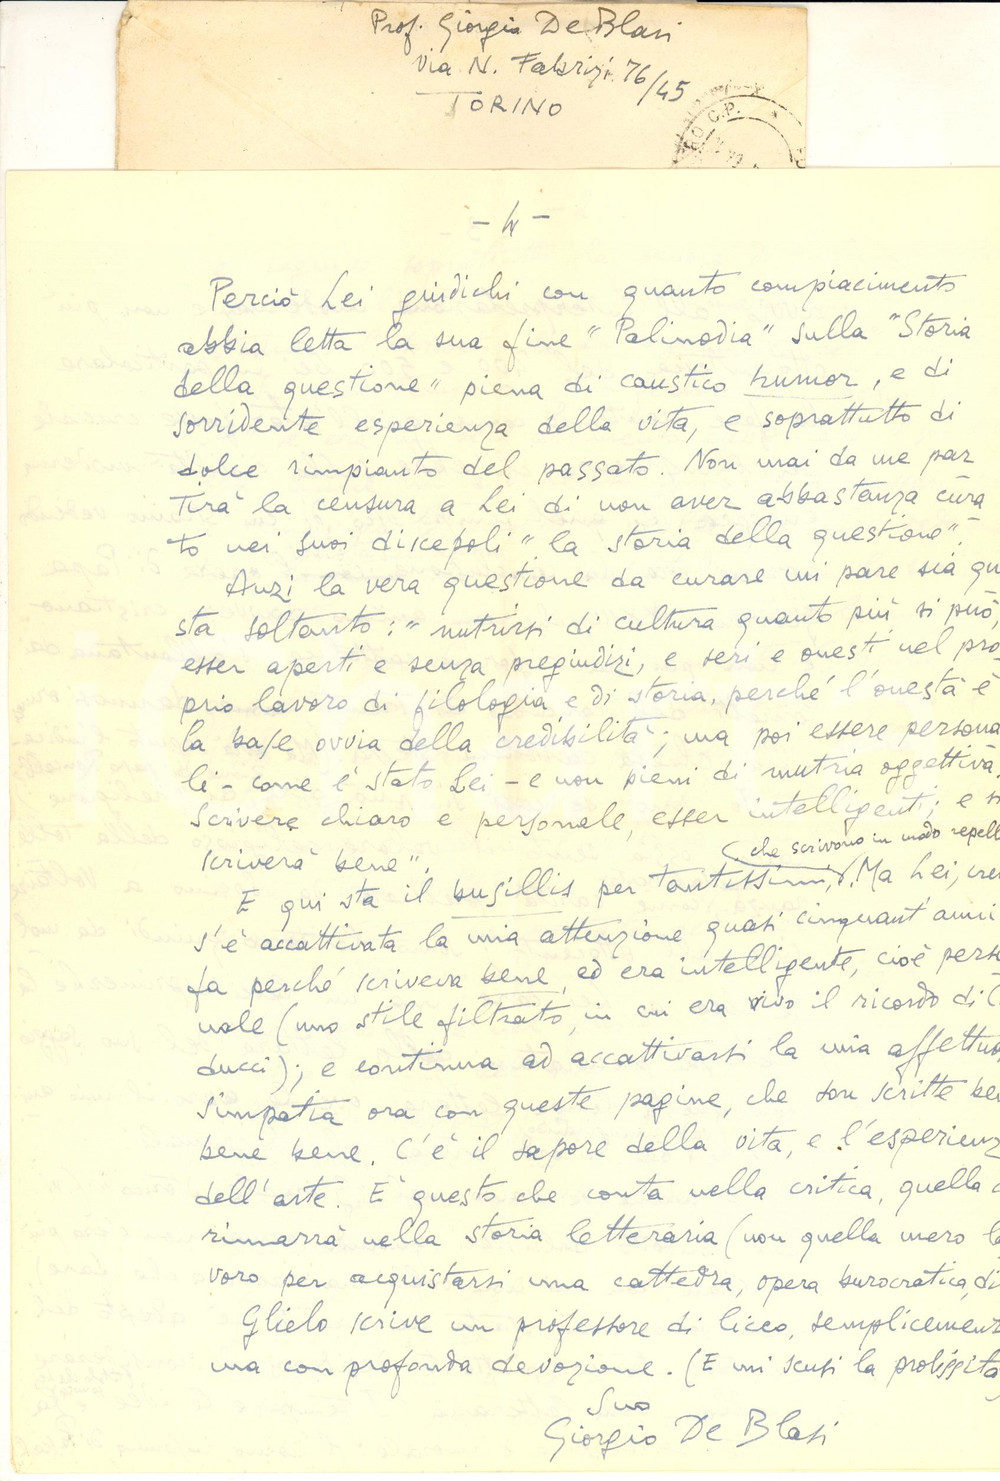 Prof. Giorgio De Blasi
Via N. Fabrizi 76/45
TORINO
C.P.
- 4 -
Perciò Lei giudichi con quanto compiacimento
abbia letta la sua fine "Palinodia" sulla "Storia
della questione" piena di caustico humor, e di
sorridente esperienza della vita, e soprattutto di
dolce rimpianto del passato. Non mai da me par
tirà la censura a Lei di non aver abbastanza cura
to nei suoi discepoli "la storia della questione".
Anzi la vera questione da curare mi pare sia que
sta soltanto: "nutrirsi di cultura quanto più si può,
esser aperti e senza pregiudizi, e seri e onesti nel pro-
prio lavoro di filologia e di storia, perché l'onestà è
la base ovvia della credibilità; ma poi essere persona
li - come è stato Lei - e non pieni di mutria oggettiva.
Scrivere chiaro e personale, esser intelligenti; e si
scriverà bene".
(che scrivono in modo repell
E qui sta il busillis per tantissimi. Ma Lei,
s'è accattivata la mia attenzione quasi cinquant'anni
fa perché scriveva bene, ed era intelligente, cioè perso
nale (uno stile filtrato, in cui era vivo il ricordo di C
ducci); e continua ad accattivarsi la mia affettuo
simpatia ora con queste pagine, che son scritte be
bene bene. C'è il sapore della vita, e l'esperienz
dell'arte. E' questo che conta nella critica, quella c
rimarrà nella storia letteraria (non quella mero la
voro per acquistarsi una cattedra, opera burocratica, di
Glielo scrive un professore di liceo, semplicement
ma con profonda devozione. (E mi scusi la prolissità
Suo
Giorgio De Blasi